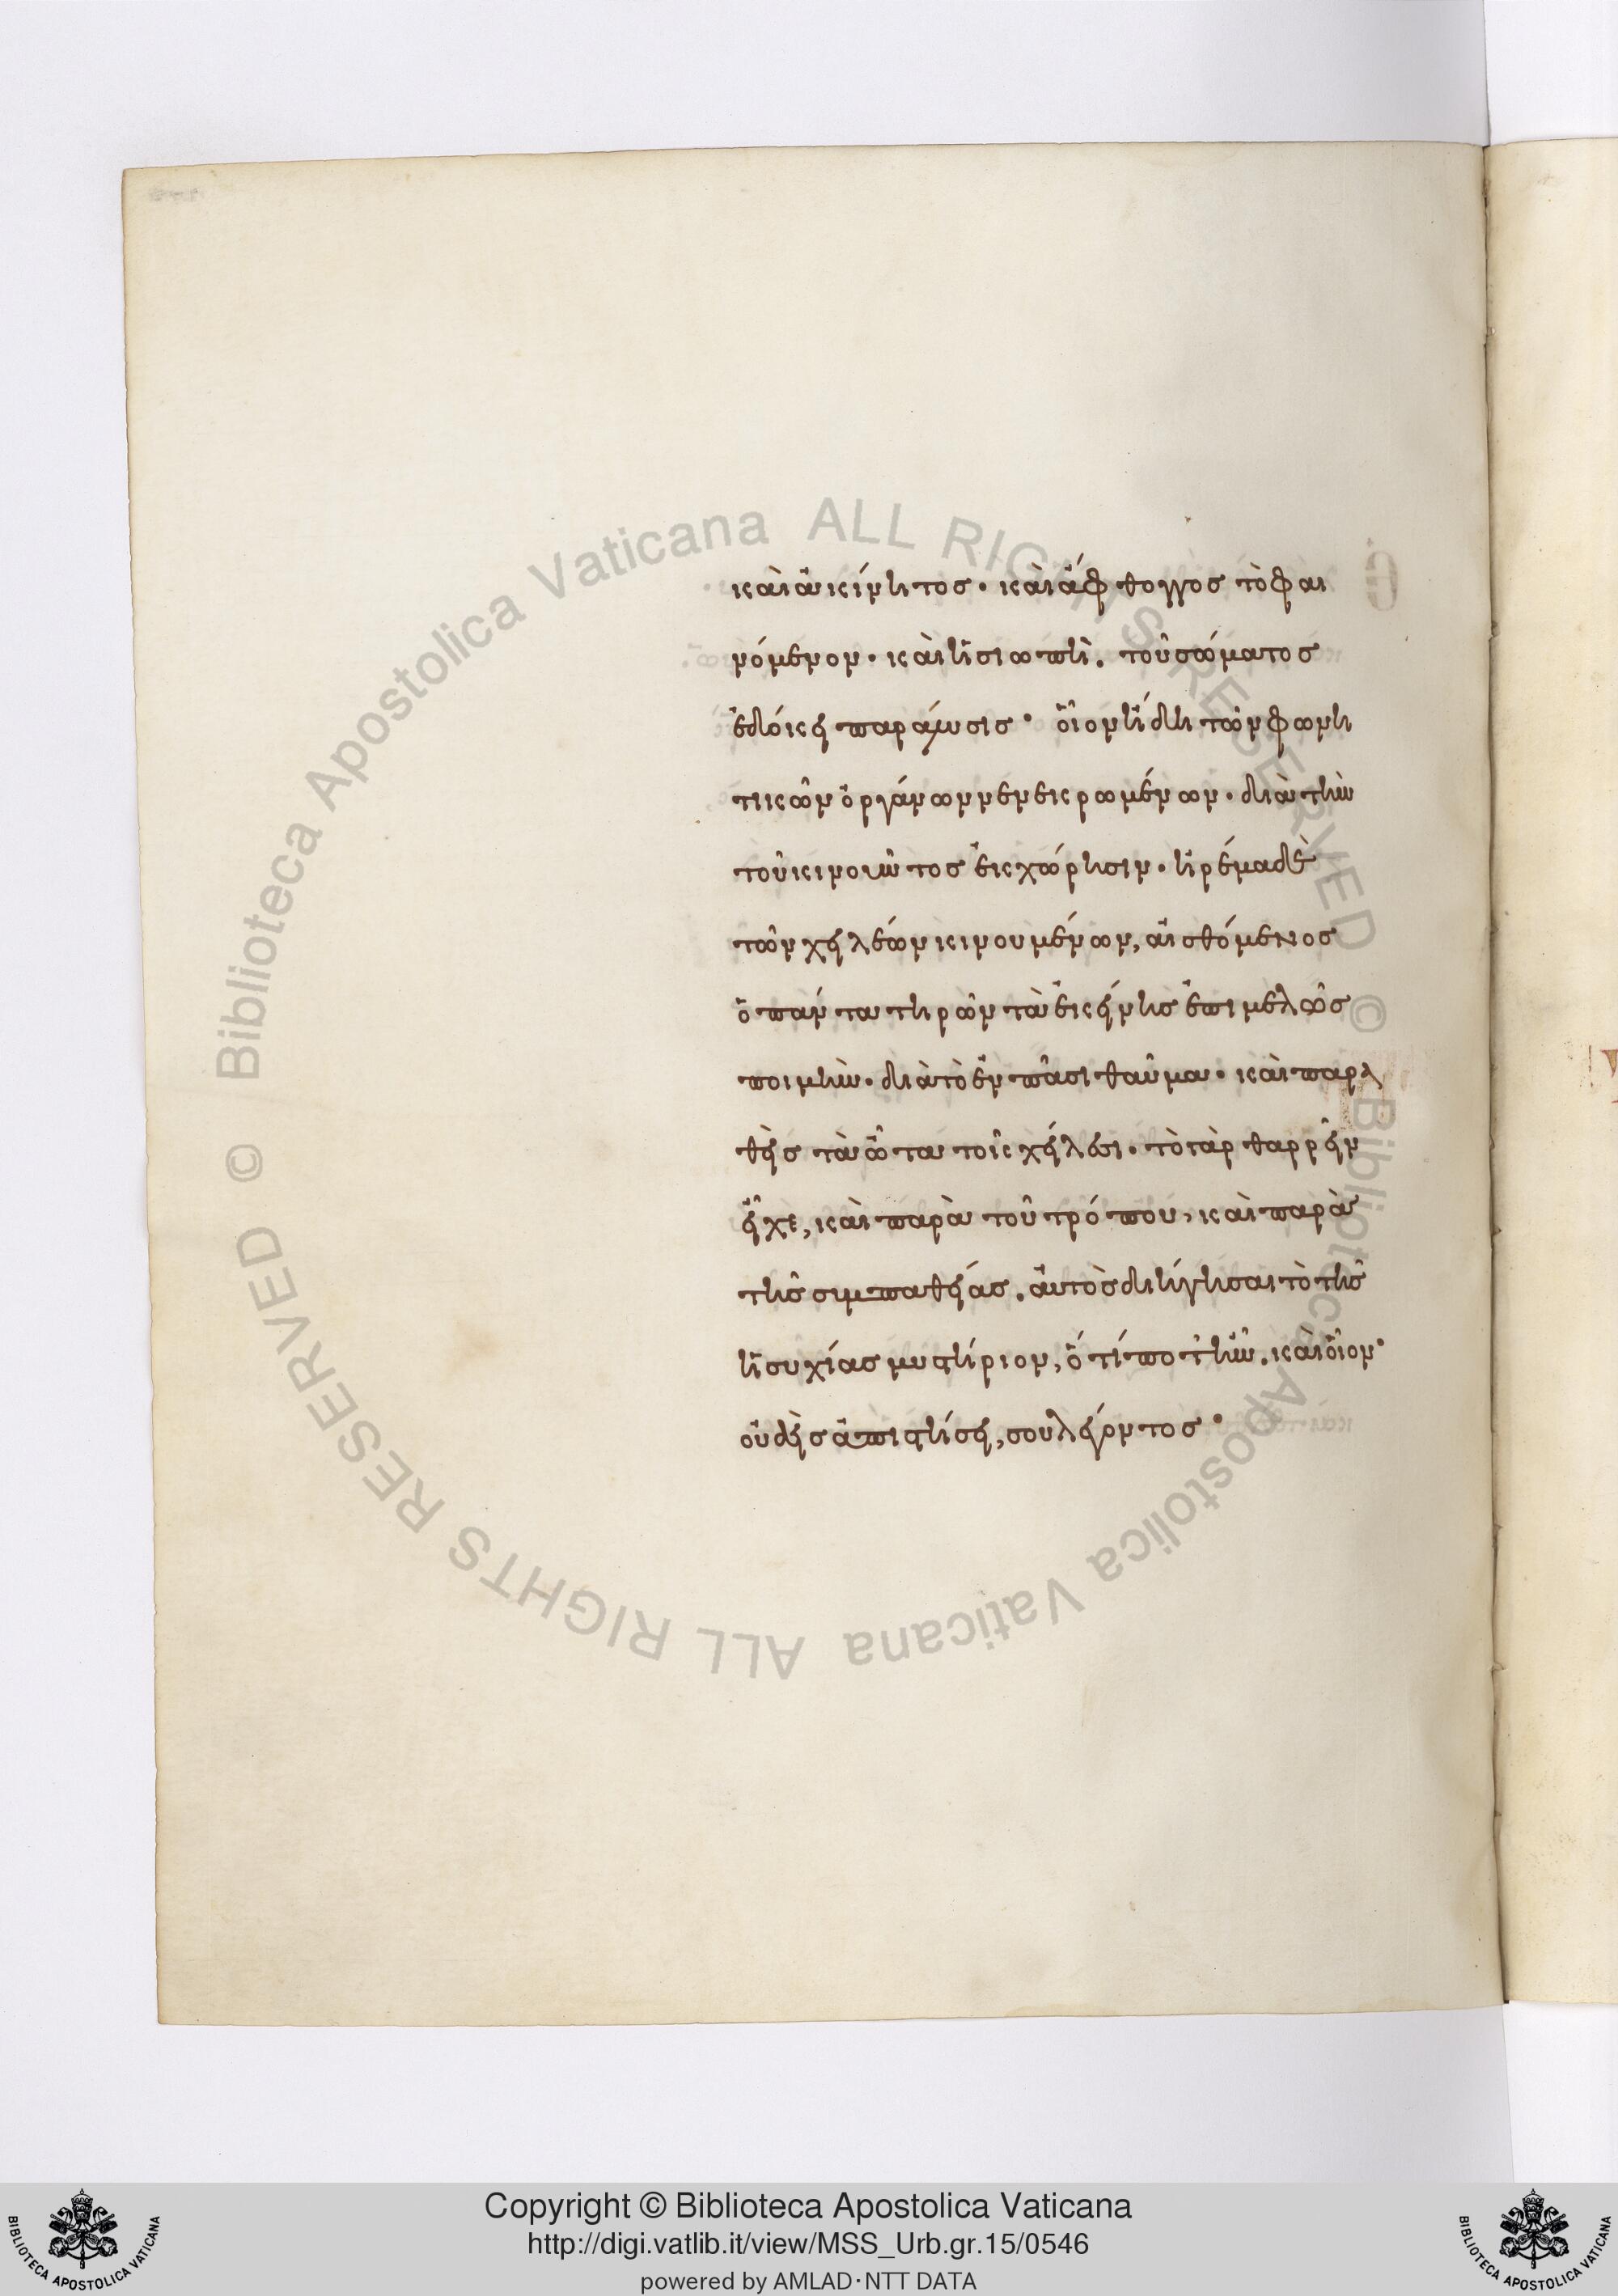 καὶ ἀκίνητος· καὶ ἄφθογγος τὸ φαι
νόμενον· καὶ ἡ σιωπὴ. τοῦ σώματος
ἐδόκει παράλυσις· οἷον ἤδη τῶν φωνη
τικῶν ὀργάνων νενεκρωμένων· διὰ τὴν
τοῦ κινοῦντος ἐκχώρησιν· ἠρέμα δὲ
τῶν χειλέων κινουμένων, αἰσθόμενος
ὁ πάντα τηρῶν τὰ ἐκείνης ἐπιμελῶς
ποιμὴν· διὰ τὸ ἐν πᾶσι θαῦμα· καὶ παρα
θεὶς τὰ ὦτα τοῖς χείλεσι· τὸ γὰρ θαρρεῖν
εἶχε, καὶ παρὰ τοῦ τρόπου, καὶ παρὰ
τῆς συμπαθείας. αὐτὸς διήγησαι τὸ τῆς
ἡσυχίας μυστήριον, ὅ τί ποτ' ἦν. καὶ οἷον·
οὐδεὶς ἀπιστήσει, σοῦ λέγοντος·
Copyright © Biblioteca Apostolica Vaticana
http://digi.vatlib.it/view/MSS_Urb.gr.15/0546
powered by AMLAD·NTT DATA
BIBLIOTECA APOSTOLICA VATICANA
BIBLIOTECA APOSTOLICA VATICANA
© Biblioteca Apostolica Vaticana ALL RIGHTS RESERVED
© Biblioteca Apostolica Vaticana ALL RIGHTS RESERVED